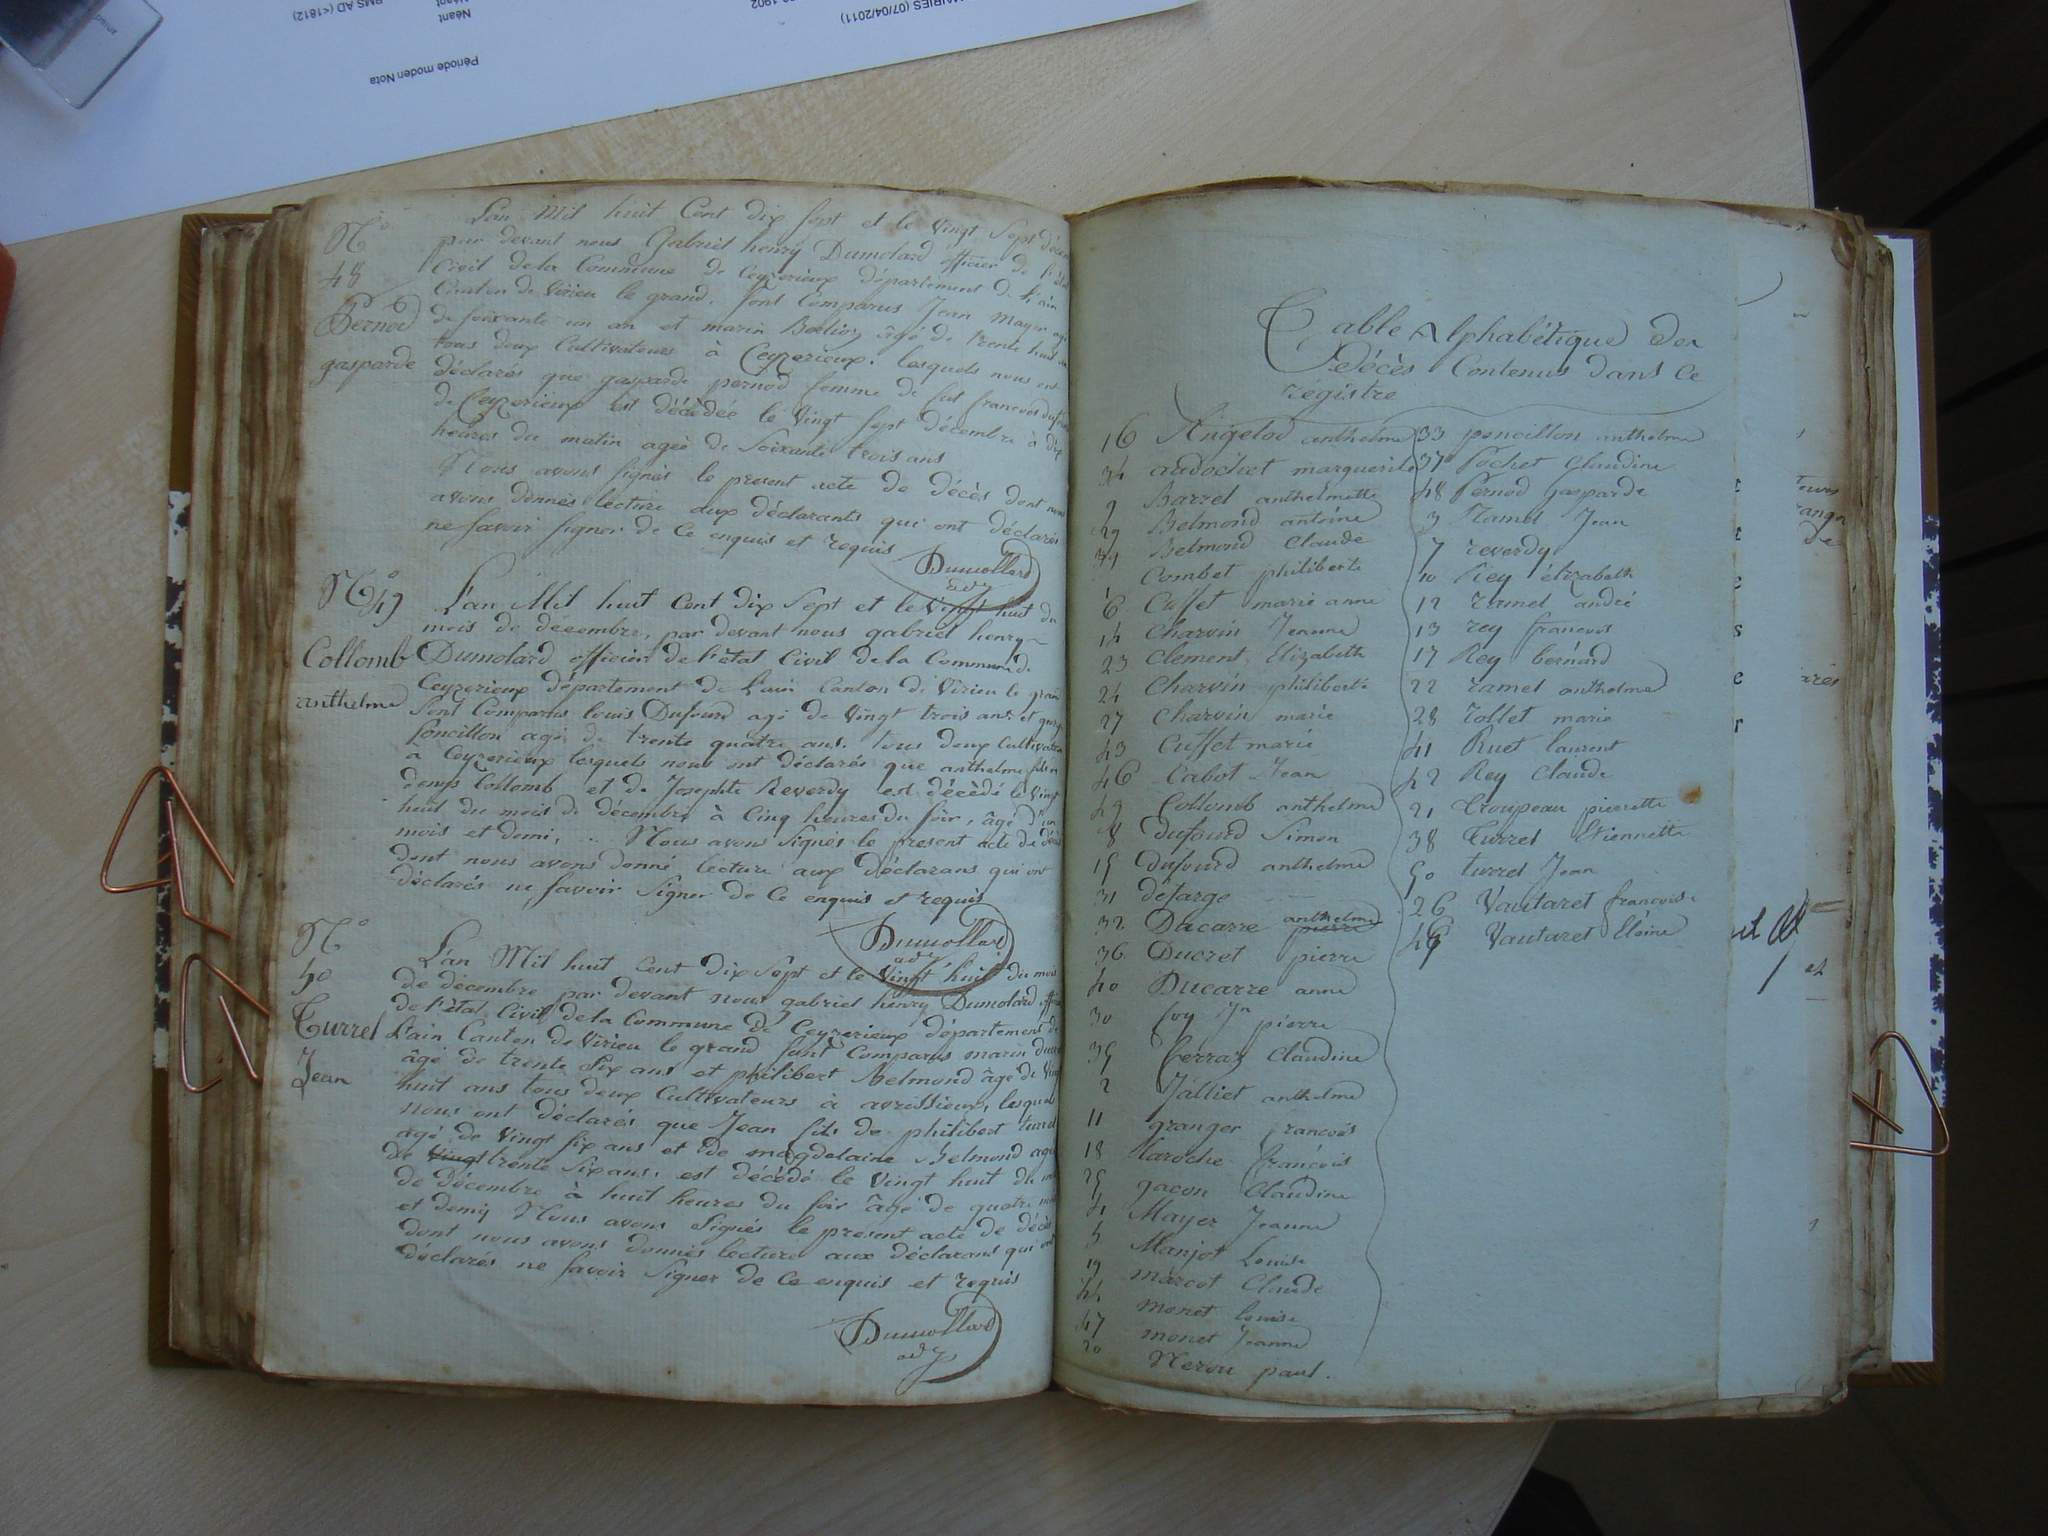 Période moden Nota
Néant
Néant
RMS AD (<1812)
MAIRIES (07/04/2011)
1902
N°
48
Pernod
gasparde
L'an Mil huit Cent dix Sept et le Vingt Sept décem
par devant nous Gabriel henry Dumolard officier de l'état
Civil de la Commune de Ceyzerieux département de L'ain
Canton de Virieu le grand. sont Comparus Jean Mayer agé
de soixante un an et marin Berlioz âgé de trente huit ans
tous deux Cultivateurs à Ceyzerieux. lesquels nous ont
déclarés que gasparde pernod femme de fut francois dufour
de Ceyzerieux est décèdée le Vingt Sept décembre à dix
heures du matin ageé de Soixante trois ans
Nous avons signés le present acte de décès dont nous
avons donnés lecture aux déclarants qui ont déclarés
ne savoir signer de Ce enquis et requis
Dumollard
adj
N° 49
Collomb
anthelme
L'an Mil huit Cent dix Sept et le Vingt huit du
mois de décembre, par devant nous gabriel henry
Dumolard officier de l'état Civil de la Commune de
Ceyzerieux département de L'ain Canton de Virieu le grand
sont Comparus louis Dufourd agé de Vingt trois ans et
poncillon agé de trente quatre ans. tous deux Cultivateurs
à Ceyzerieux lesquels nous ont déclarés que anthelme fils de
denys Collomb et de Josephte Reverdy est décèdé le Vingt
huit du mois de décembre à Cinq heures du soir, âgé d'un
mois et demi, .. Nous avons Signés le present acte de décès
dont nous avons donné lecture aux déclarans qui ont
déclarés ne savoir Signer de Ce enquis et requis
Dumollard
adj
N°
50
Turrel
Jean
L'an Mil huit Cent dix Sept et le Vingt huit du mois
de décembre par devant nous gabriel henry Dumolard
de l'état Civil de la Commune de Ceyzerieux département de
L'ain Canton de Virieu le grand sont Comparus marin
âgé de trente Six ans et philibert Belmond âgé de Vingt
huit ans tous deux Cultivateurs à avrissieux, lesquels
nous ont déclarés que Jean fils de philibert turrel
agé de Vingt six ans et de magdelaine Belmond agée
de Vingt trente Six ans. est décédé le Vingt huit du mois
de décembre à huit heures du soir âgé de quatre mois
et demy Nous avons Signés le present acte de décès
dont nous avons donnés lecture aux déclarans qui ont
déclarés ne savoir Signer de Ce enquis et requis
Dumollard
adj
Table Alphabétique des
Décès Contenus dans Ce
régistre
16 Angelod anthelme
34 audochet marguerite
9 Barrel anthelmette
29 Belmond antoine
Belmond Claude
1 Combet philiberte
6 Cusset marie anne
14 Charvin Jeanne
23 Clement Elizabeth
24 Charvin philiberte
27 Charvin marie
43 Cusset marie
46 Cabot Jean
49 Collomb anthelme
8 Dufourd Simon
15 Dufourd anthelme
31 défarge
32 Ducarre anthelme pierre
36 Ducret pierre
40 Ducarre anne
30 foy Jn pierre
35 ferraz Claudine
2 Jalliet anthelme
11 granger francois
18 Laroche françois
25 Jacon Claudine
4 Mayer Jeanne
5 Manjot Louise
19 marcot Claude
44 monet louise
47 monet Jeanne
20 Nerou paul.
33 poncillon anthelme
37 Pochet Claudine
48 Pernod gasparde
3 Ramel Jean
7 reverdy
10 Rey élizabeth
12 ramel andré
13 rey francois
17 Rey bernard
22 ramel anthelme
28 rollet marie
41 Ruet laurent
42 Rey Claude
21 Troupeau pierrette
38 Turrel Etiennette
50 turrel Jean
26 Vautaret francoise
Vautaret